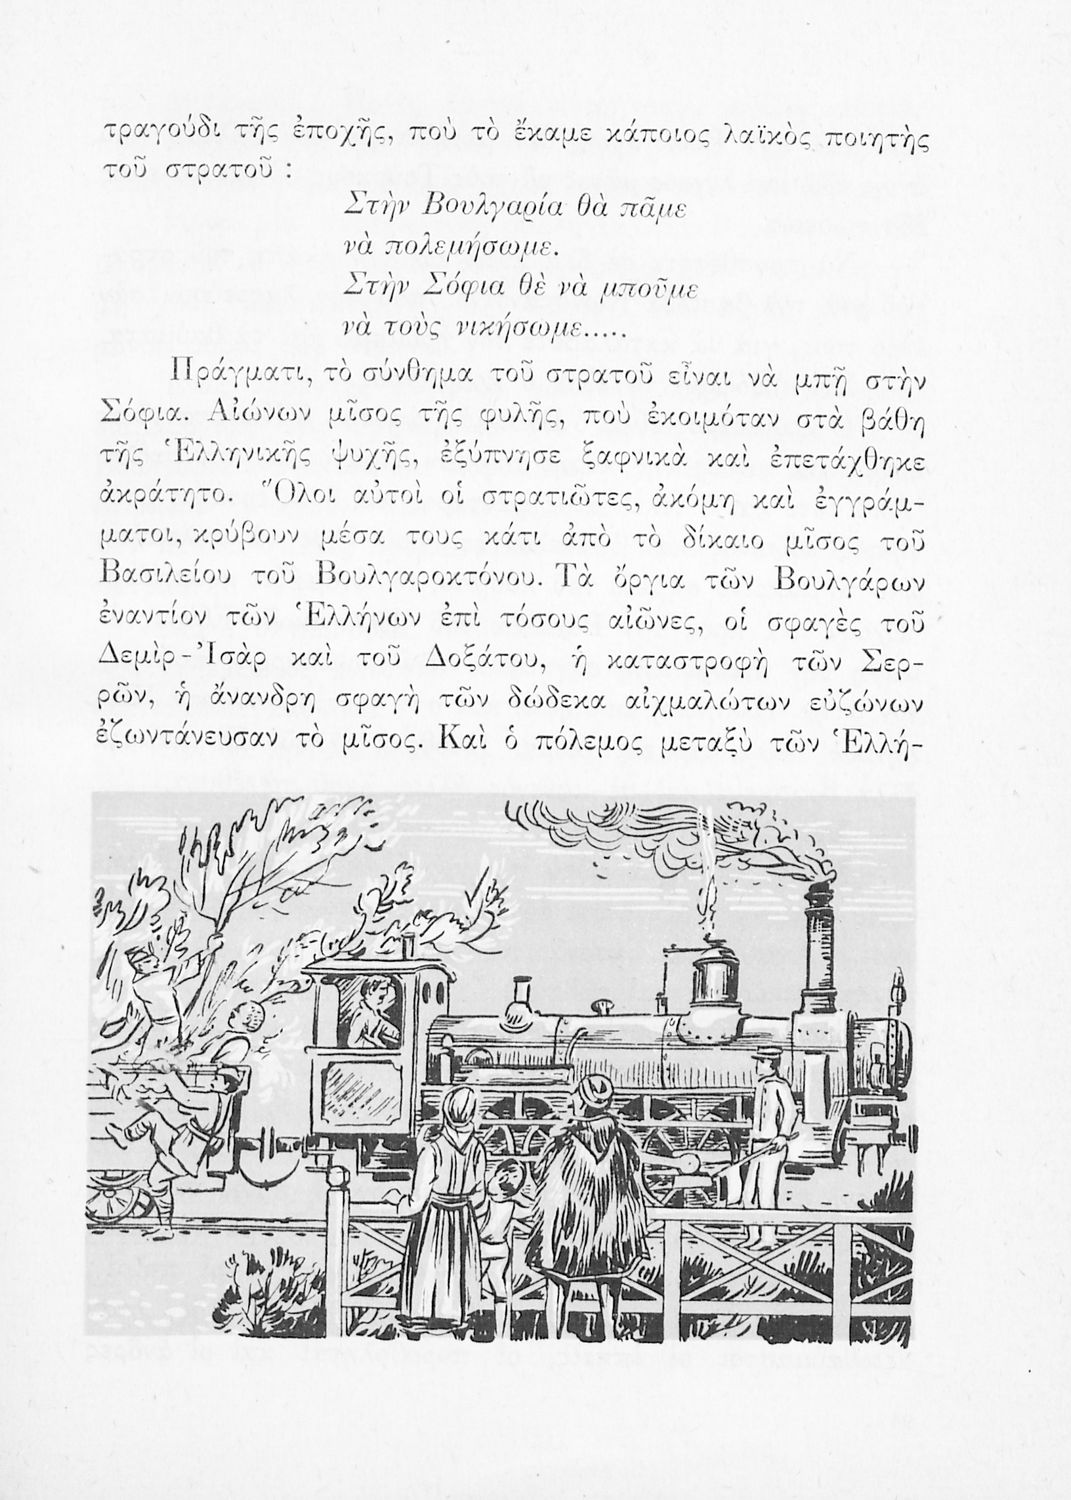 τραγούδι τῆς ἐποχῆς, ποὺ τὸ ἔκαμε κάποιος λαϊκὸς ποιητὴς
τοῦ στρατοῦ :
Στὴν Βουλγαρία θὰ πᾶμε
νὰ πολεμήσωμε.
Στὴν Σόφια θὲ νὰ μποῦμε
νὰ τοὺς νικήσωμε.....
Πράγματι, τὸ σύνθημα τοῦ στρατοῦ εἶναι νὰ μπῇ στὴν
Σόφια. Αἰώνων μῖσος τῆς φυλῆς, ποὺ ἐκοιμόταν στὰ βάθη
τῆς Ἑλληνικῆς ψυχῆς, ἐξύπνησε ξαφνικὰ καὶ ἐπετάχθηκε
ἀκράτητο. Ὅλοι αὐτοὶ οἱ στρατιῶτες, ἀκόμη καὶ ἐγγράμ-
ματοι, κρύβουν μέσα τους κάτι ἀπὸ τὸ δίκαιο μῖσος τοῦ
Βασιλείου τοῦ Βουλγαροκτόνου. Τὰ ὄργια τῶν Βουλγάρων
ἐναντίον τῶν Ἑλλήνων ἐπὶ τόσους αἰῶνες, οἱ σφαγὲς τοῦ
Δεμὶρ-Ἰσὰρ καὶ τοῦ Δοξάτου, ἡ καταστροφὴ τῶν Σερ-
ρῶν, ἡ ἄνανδρη σφαγὴ τῶν δώδεκα αἰχμαλώτων εὐζώνων
ἐζωντάνευσαν τὸ μῖσος. Καὶ ὁ πόλεμος μεταξὺ τῶν Ἑλλή-